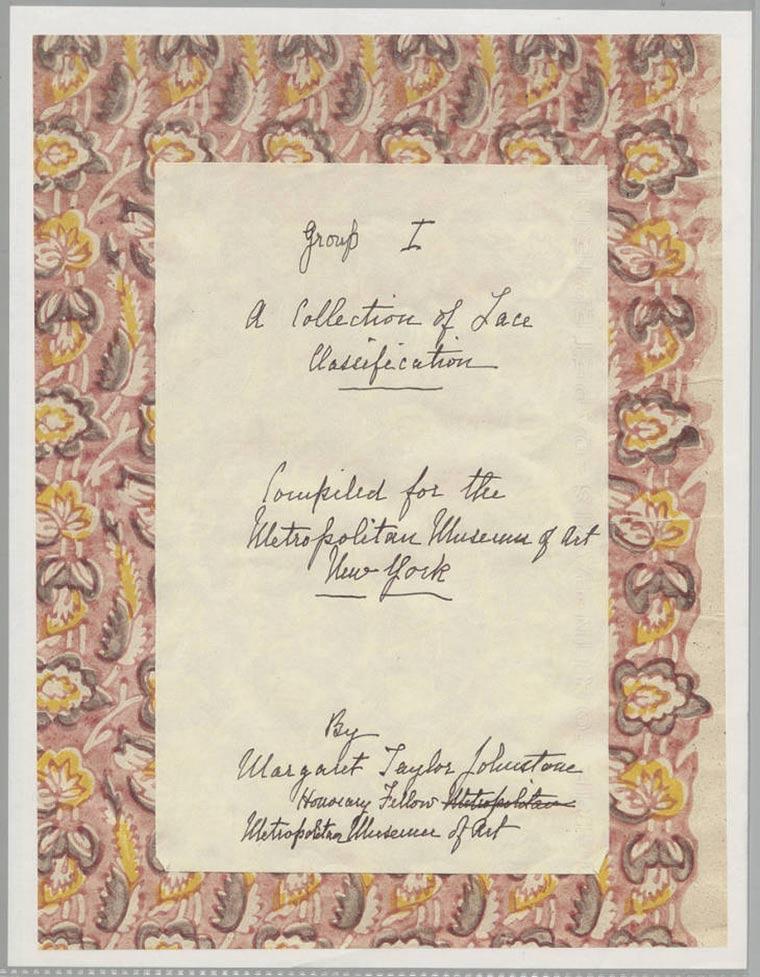 Group I
A Collection of Lace
Classification
Compiled for the
Metropolitan Museum of Art
New York
By
Margaret Taylor Johnstone
Honorary Fellow Metropolitan
Metropolitan Museum of Art